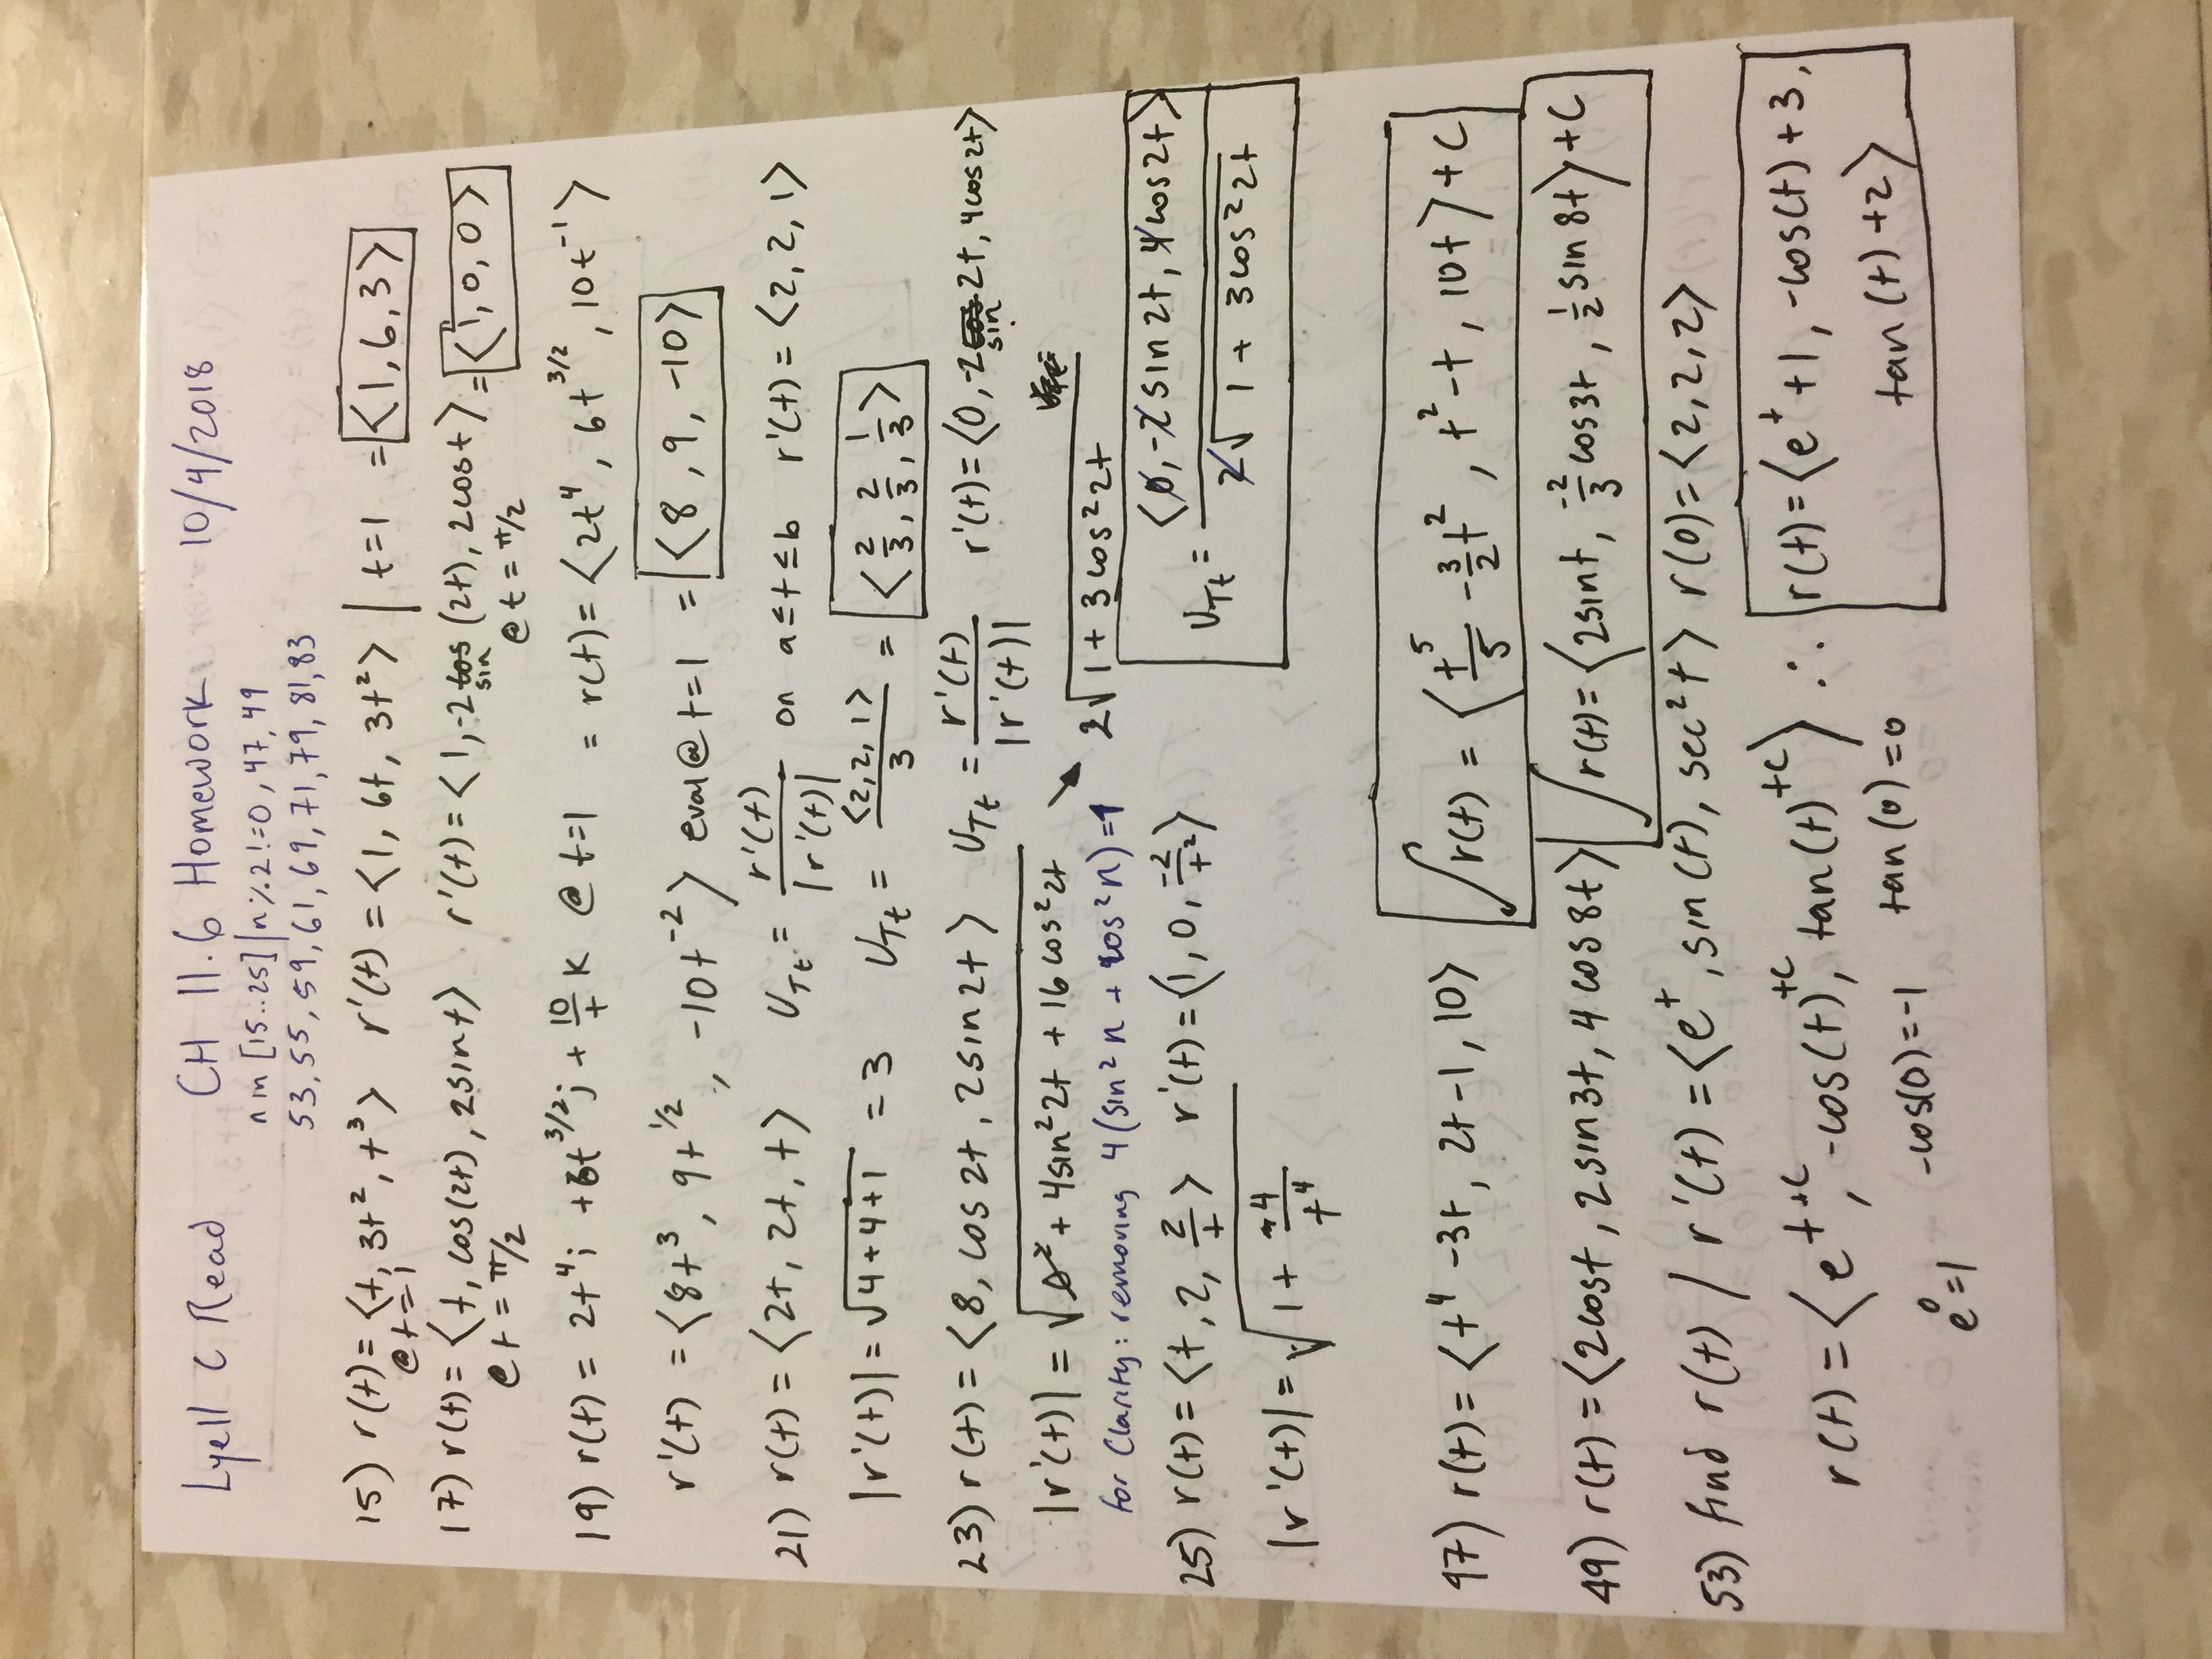 Lyell C Read CH 11.6 Homework 10/4/2018
n in [15..25] | n%2!=0, 47, 49
53, 55, 59, 61, 69, 71, 79, 81, 83
15) r(t)= ⟨t, 3t², t³⟩ r'(t) = ⟨1, 6t, 3t²⟩ | t=1 = ⟨1, 6, 3⟩
@t=1
17) r(t)= ⟨t, cos(2t), 2sint⟩ r'(t)= ⟨1, -2 sin (2t), 2cost⟩ = ⟨1, 0, 0⟩
@t = π/2 @t = π/2
19) r(t) = 2t⁴i + 6t^(3/2)j + 10/t K @ t=1 = r(t)= ⟨2t⁴, 6t^(3/2), 10t⁻¹⟩
r'(t) = ⟨8t³, 9t^(1/2), -10t⁻²⟩ eval@t=1 = ⟨8, 9, -10⟩
21) r(t) = ⟨2t, 2t, t⟩ U_Tt = r'(t)/|r'(t)| on a≤t≤b r'(t) = ⟨2, 2, 1⟩
|r'(t)| = √(4+4+1) = 3 U_Tt = ⟨2,2,1⟩/3 = ⟨2/3, 2/3, 1/3⟩
23) r(t) = ⟨8, cos2t, 2sin2t⟩ U_Tt = r'(t)/|r'(t)| r'(t)= ⟨0, -2 sin 2t, 4cos2t⟩
|r'(t)| = √(0² + 4sin²2t + 16cos²2t) ↘ 2√(1 + 3cos²2t)
for Clarity: removing 4(sin²n + cos²n)=1
U_Tt = ⟨0, -2sin2t, 4cos2t⟩/2√(1 + 3cos²2t)
25) r(t) = ⟨t, 2, 2/t⟩ r'(t) = ⟨1, 0, -2/t²⟩
|r'(t)| = √(1 + 4/t⁴)
47) r(t) = ⟨t⁴ -3t, 2t-1, 10⟩ ∫r(t) = ⟨t⁵/5 - 3/2 t², t²-t, 10t⟩+C
49) r(t) = ⟨2cost, 2sin3t, 4cos8t⟩ ∫r(t)= ⟨2sint, -2/3 cos3t, 1/2 sin8t⟩+C
53) find r(t) / r'(t) = ⟨e^t, sin(t), sec²t⟩ r(0)= ⟨2,2,2⟩
r(t) = ⟨e^t +C, -cos(t)+C, tan(t)+C⟩ ∴ r(t)= ⟨e^t +1, -cos(t)+3,
tan(t)+2⟩
e⁰=1 -cos(0)=-1 tan(0)=0